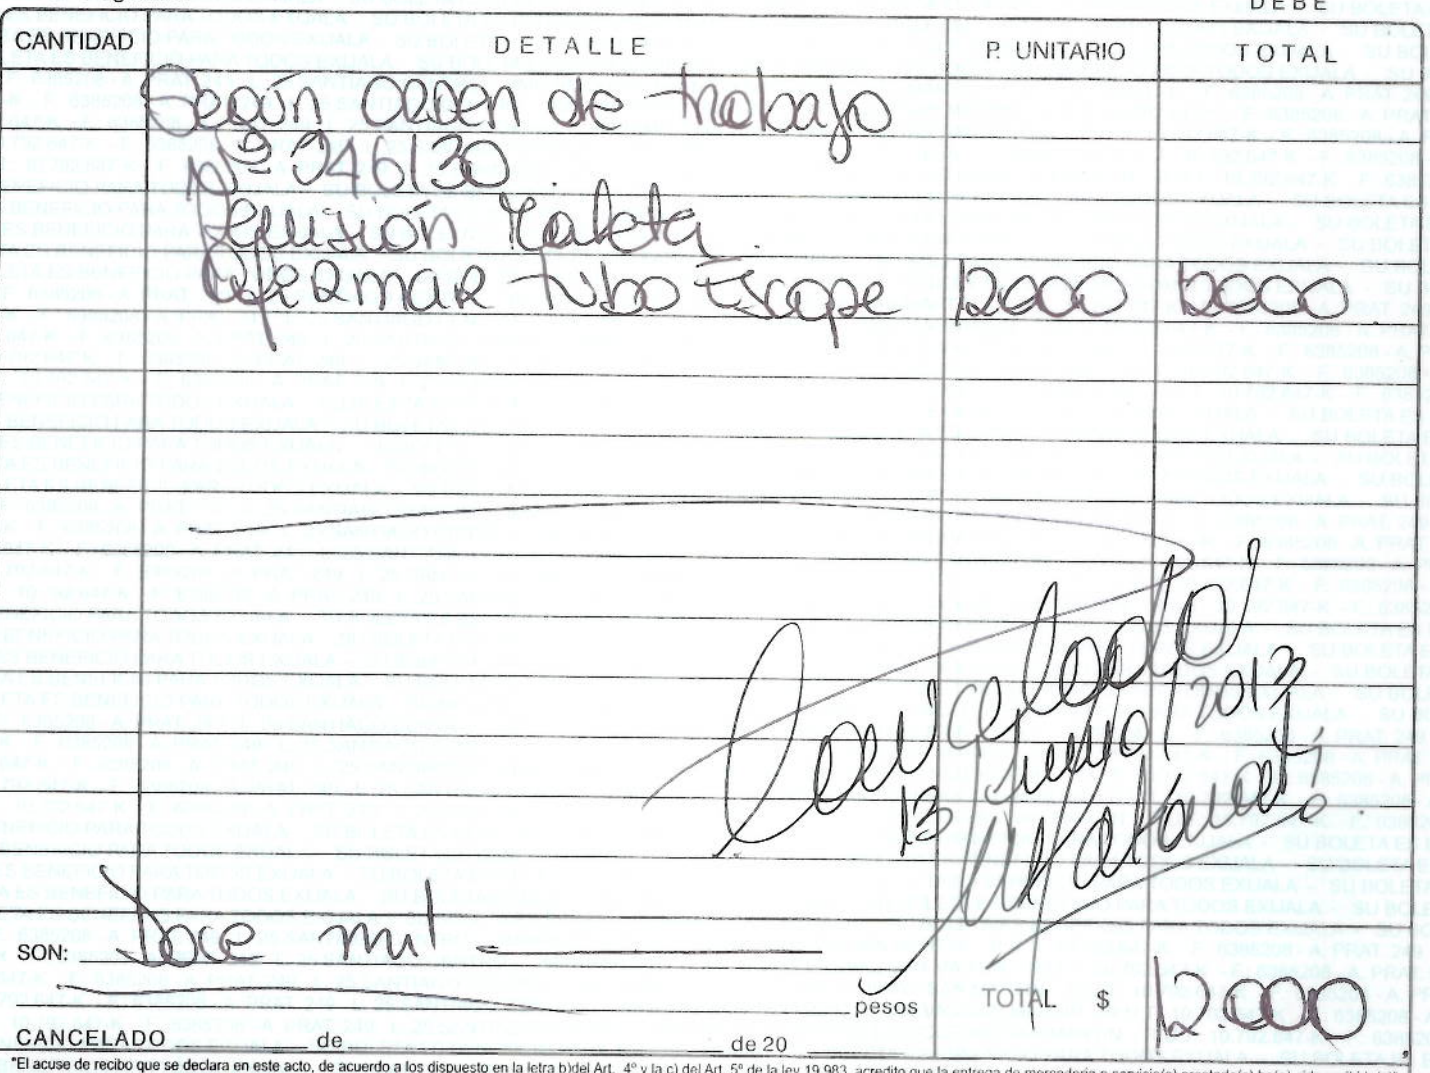 DEBE
CANTIDAD DETALLE P. UNITARIO TOTAL
Según orden de trabajo
Nº 046130
Revisión Maleta.
Reformar tubo Escape 12000 12000
Cancelado
13 Junio 2013
SON: Doce mil
pesos TOTAL $ 12.000
CANCELADO de de 20
"El acuse de recibo que se declara en este acto, de acuerdo a los dispuesto en la letra b)del Art. 4º y la c) del Art. 5º de la ley 19.983, acredito que la entrega de mercadería o servicio(s)